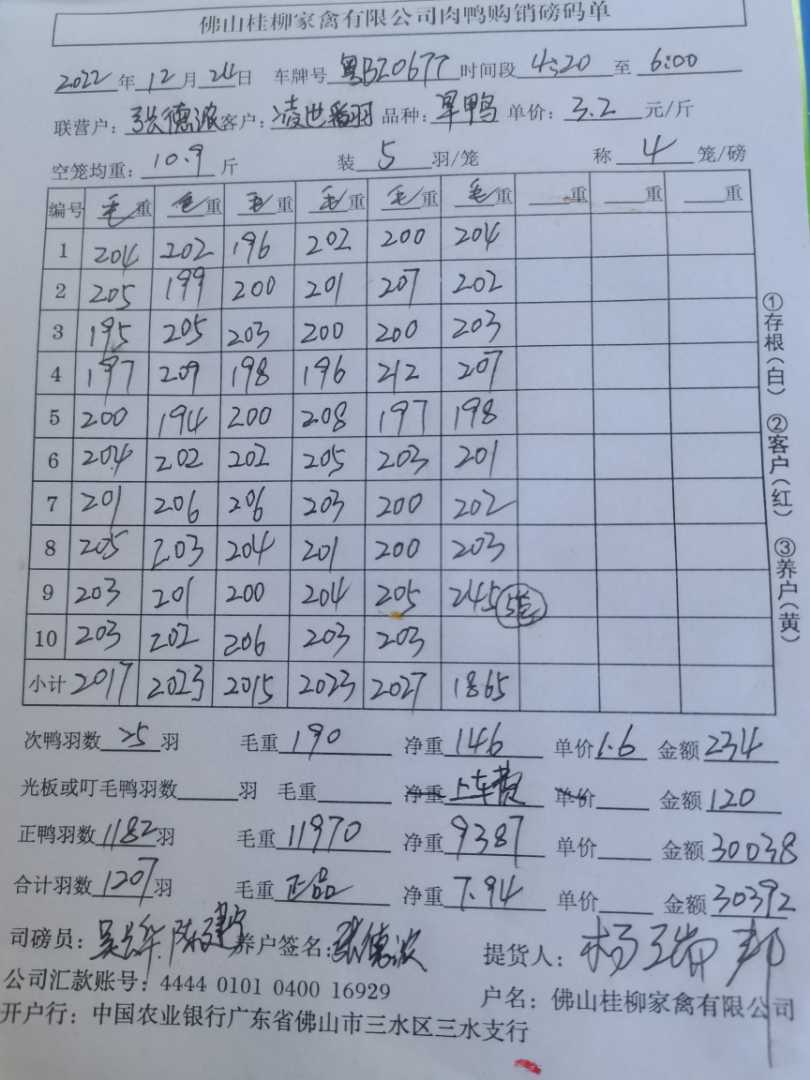 佛山桂柳家禽有限公司肉鸭购销磅码单
2022年12月24日 车牌号 粤BZ0677 时间段 4:20 至 6:00
联营户: 张德浓 客户: 凌世 品种: 旱鸭 单价: 3.2 元/斤
空笼均重: 10.9 斤 装 5 羽/笼 称 4 笼/磅
编号 毛重 毛重 毛重 毛重 毛重 毛重 重 重 重
1 204 202 196 202 200 204
2 205 199 200 201 207 202
3 195 205 203 200 200 203
4 197 209 198 196 212 207
5 200 194 200 208 197 198
6 204 202 202 205 203 201
7 201 206 206 203 200 202
8 205 203 204 201 200 203
9 203 201 200 204 205 245 5笼
10 203 202 206 203 203
小计 2017 2023 2015 2023 2027 1865
①存根(白) ②客户(红) ③养户(黄)
次鸭羽数 25 羽 毛重 190 净重 146 单价 1.6 金额 234
光板或叮毛鸭羽数 羽 毛重 净重 上车费 单价 金额 120
正鸭羽数 1182 羽 毛重 11970 净重 9387 单价 金额 30038
合计羽数 1207 羽 毛重 正品 净重 7.94 单价 金额 30392
司磅员: 养户签名: 张德浓 提货人: 杨瑞邦
公司汇款账号: 4444 0101 0400 16929 户名: 佛山桂柳家禽有限公司
开户行: 中国农业银行广东省佛山市三水区三水支行